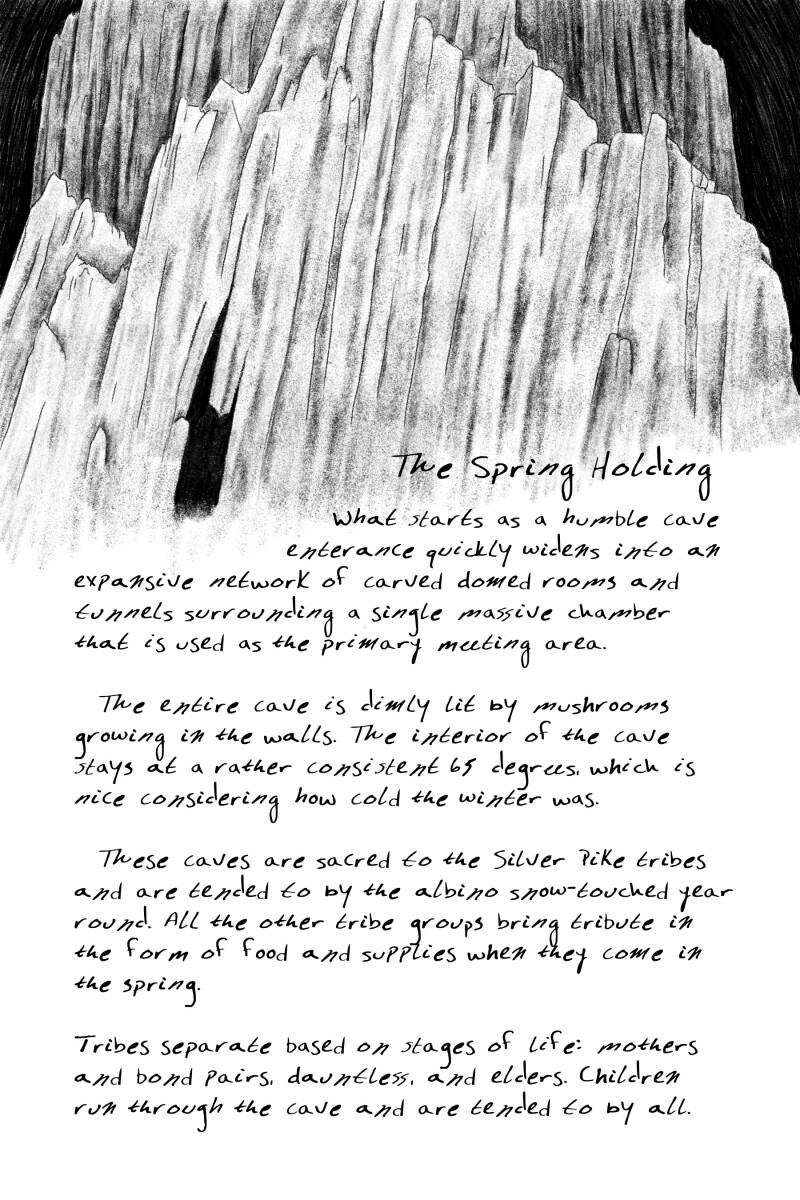 The Spring Holding
What starts as a humble cave
enterance quickly widens into an
expansive network of carved domed rooms and
tunnels surrounding a single massive chamber
that is used as the primary meeting area.
The entire cave is dimly lit by mushrooms
growing in the walls. The interior of the cave
stays at a rather consistent 65 degrees, which is
nice considering how cold the winter was.
These caves are sacred to the Silver Pike tribes
and are tended to by the albino snow-touched year
round. All the other tribe groups bring tribute in
the form of food and supplies when they come in
the spring.
Tribes separate based on stages of life: mothers
and bond pairs, dauntless, and elders. Children
run through the cave and are tended to by all.